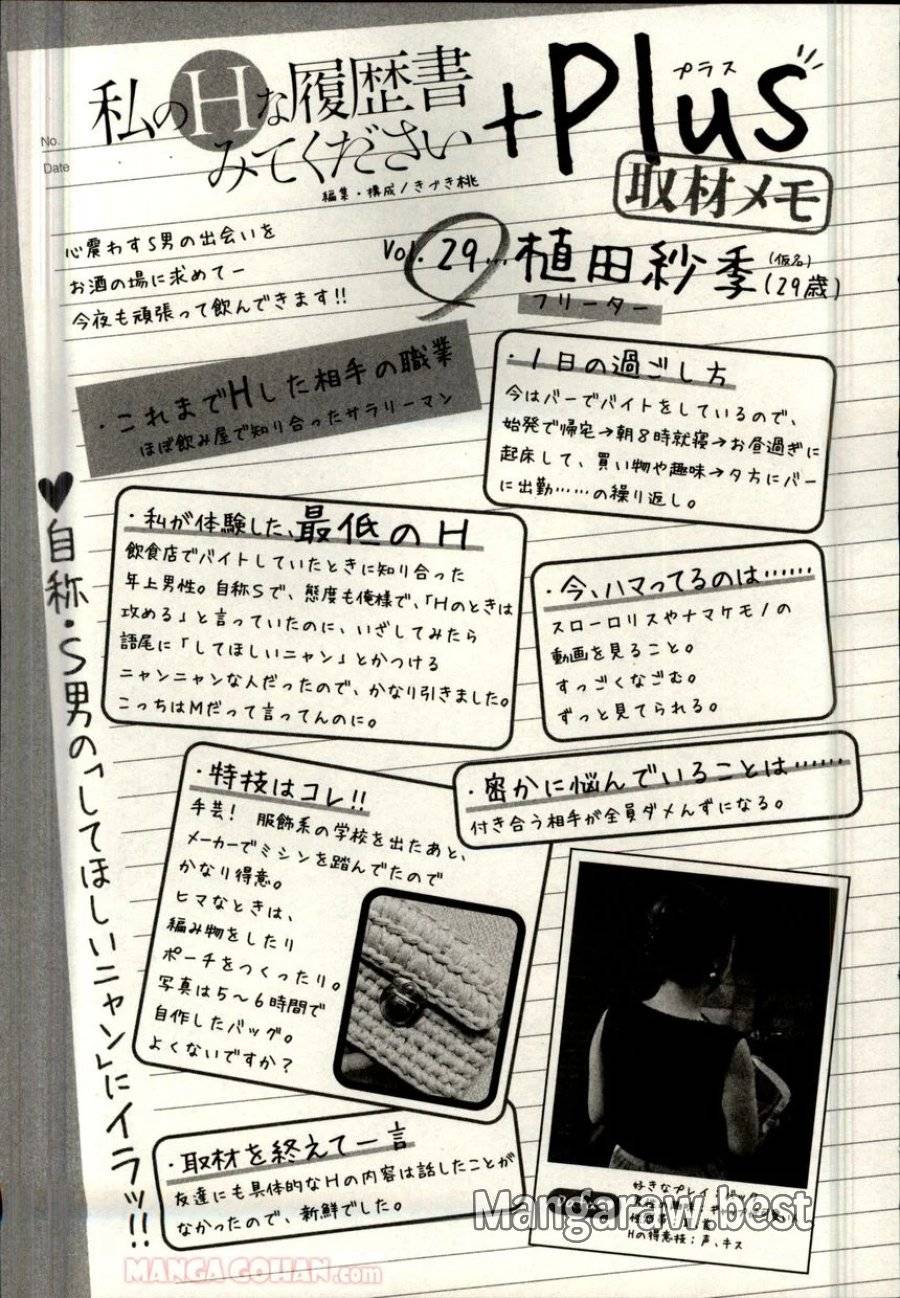 No.
Date
私のHな履歴書
みてください
+Plus
プラス
編集・構成/きづき桃
取材メモ
心震わすS男の出会いを
お酒の場に求めてー
今夜も頑張って飲んできます!!
Vol.29…植田紗季(仮名)(29歳)
フリーター
・これまでHした相手の職業
ほぼ飲み屋で知り合ったサラリーマン
・1日の過ごし方
今はバーでバイトをしているので、
始発で帰宅→朝8時就寝→お昼過ぎに
起床して、買い物や趣味→夕方にバー
に出勤……の繰り返し。
♥自称・S男の「してほしいニャン」にイラッ!!
・私が体験した、最低のH
飲食店でバイトしていたときに知り合った
年上男性。自称Sで、態度も俺様で、「Hのときは
攻める」と言っていたのに、いざしてみたら
語尾に「してほしいニャン」とかつける
ニャンニャンな人だったので、かなり引きました。
こっちはMだって言ってんのに。
・今、ハマってるのは……
スローロリスやナマケモノの
動画を見ること。
すっごくなごむ。
ずっと見てられる。
・特技はコレ!!
手芸! 服飾系の学校を出たあと、
メーカーでミシンを踏んでたので
かなり得意。
ヒマなときは、
編み物をしたり
ポーチをつくったり。
写真は5〜6時間で
自作したバッグ。
よくないですか?
・密かに悩んでいることは……
付き合う相手が全員ダメんずになる。
・取材を終えて一言
友達にも具体的なHの内容は話したことが
なかったので、新鮮でした。
好きなプレイ
Hの得意技:声、キス
Mangaraw.best
MANGAGOHAN.com